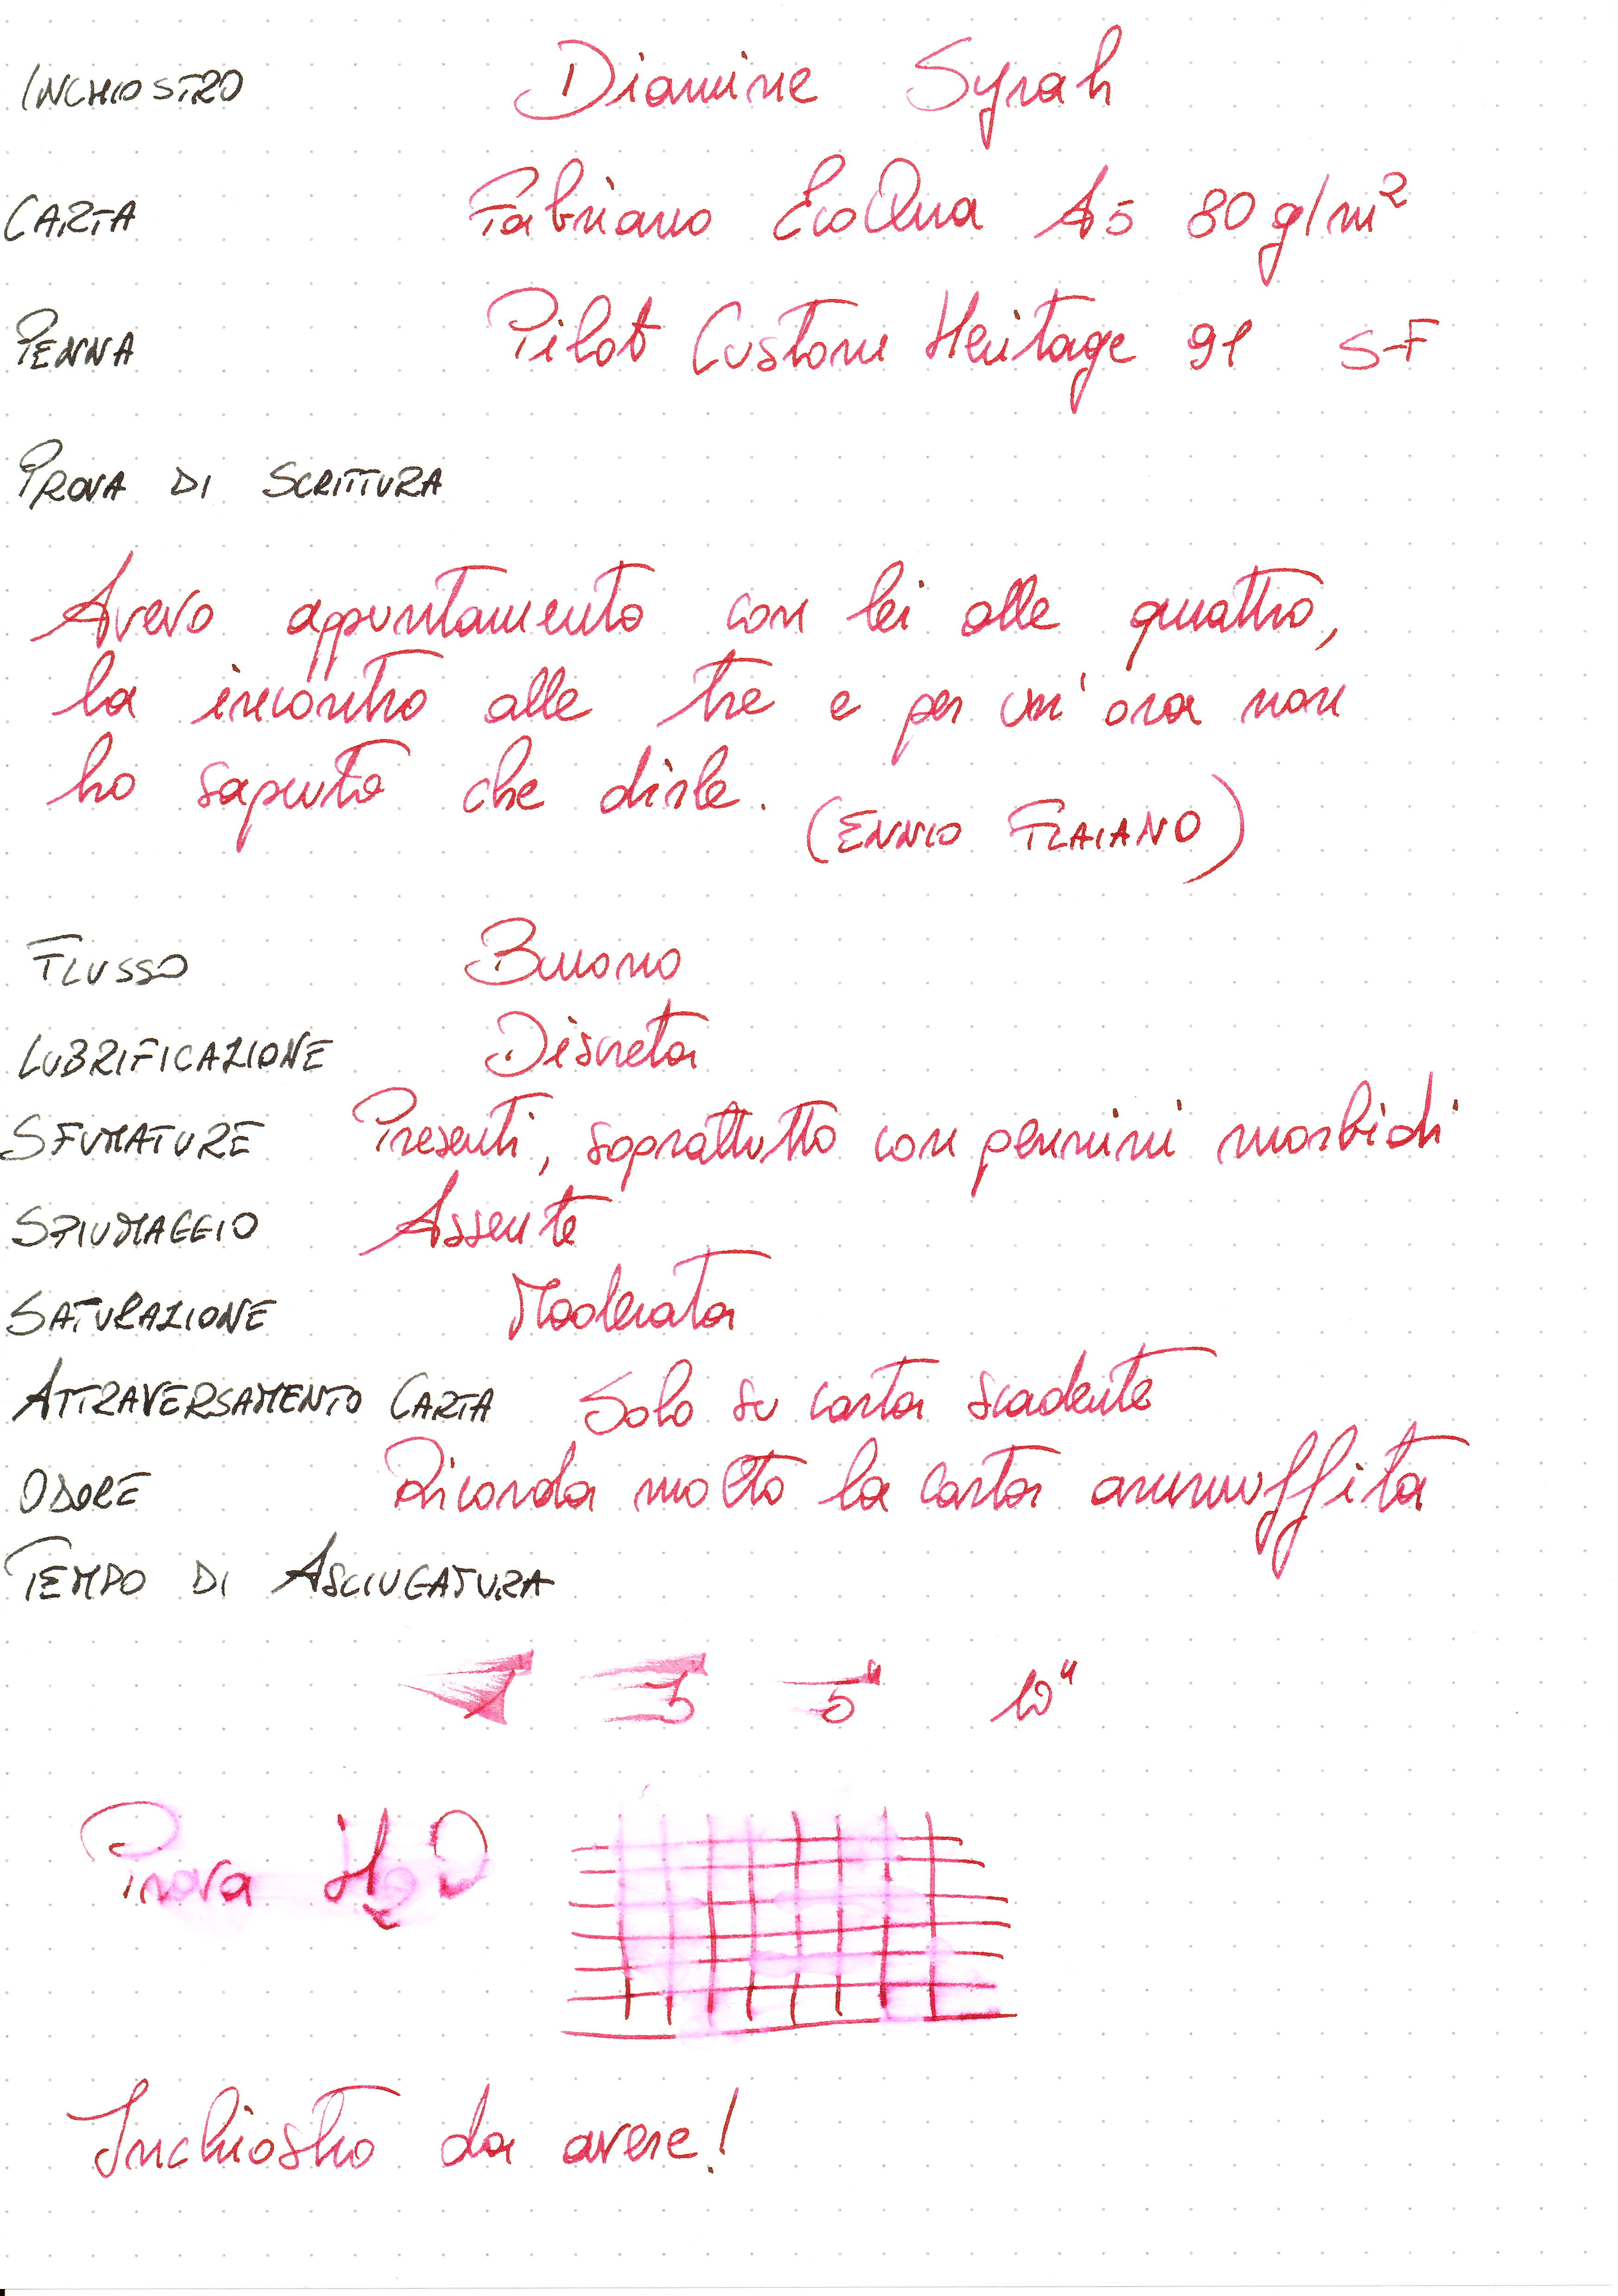 INCHIOSTRO Diamine Syrah
CARTA Fabriano EcoQua A5 80 g/m²
PENNA Pilot Custom Heritage 91 S-F
PROVA DI SCRITTURA
Avevo appuntamento con lei alle quattro,
la incontro alle tre e per un'ora non
ho saputo che dirle.
(ENNIO FLAIANO)
FLUSSO Buono
LUBRIFICAZIONE Discreta
SFUMATURE Presenti, soprattutto con pennini morbidi
SPIUMAGGIO Assente
SATURAZIONE Moderata
ATTRAVERSAMENTO CARTA Solo su carta scadente
ODORE Ricorda molto la carta ammuffita
TEMPO DI ASCIUGATURA
1" 3" 5" 10"
Prova H2O
Inchiostro da avere!